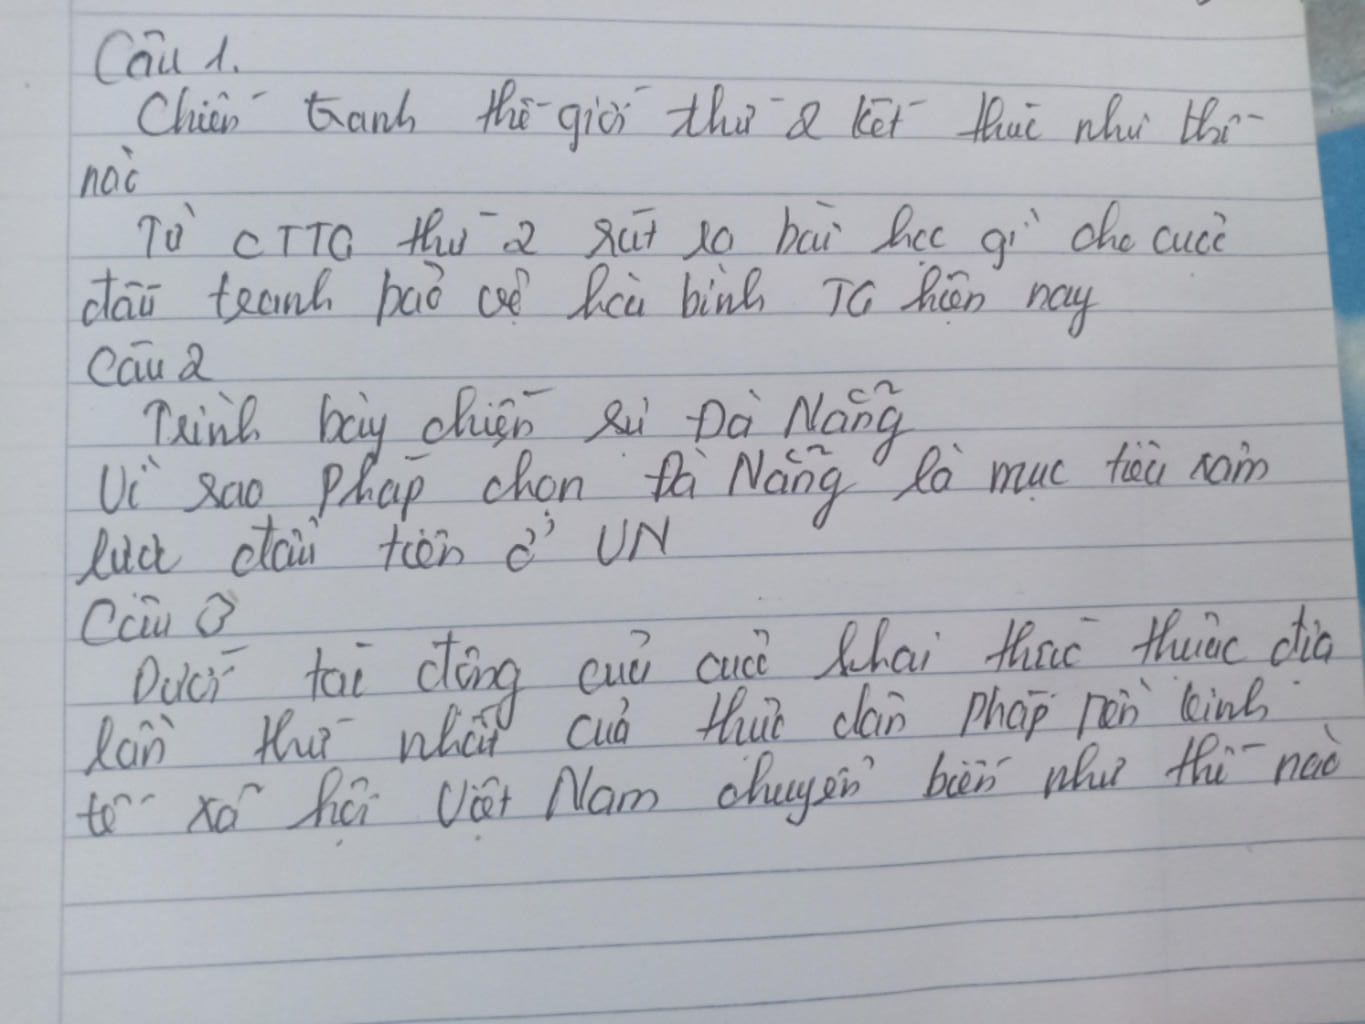 Câu 1.
Chiến tranh thế giới thứ 2 kết thúc như thế
nào
Từ CTTG thứ 2 rút ra bài học gì cho cuộc
đấu tranh bảo vệ hòa bình TG hiện nay
Câu 2
Trình bày chiến sự Đà Nẵng
Vì sao Pháp chọn Đà Nẵng là mục tiêu xâm
lược đầu tiên ở VN
Câu 3
Dưới tác động của cuộc khai thác thuộc địa
lần thứ nhất của thực dân Pháp nền kinh
tế xã hội Việt Nam chuyển biến như thế nào